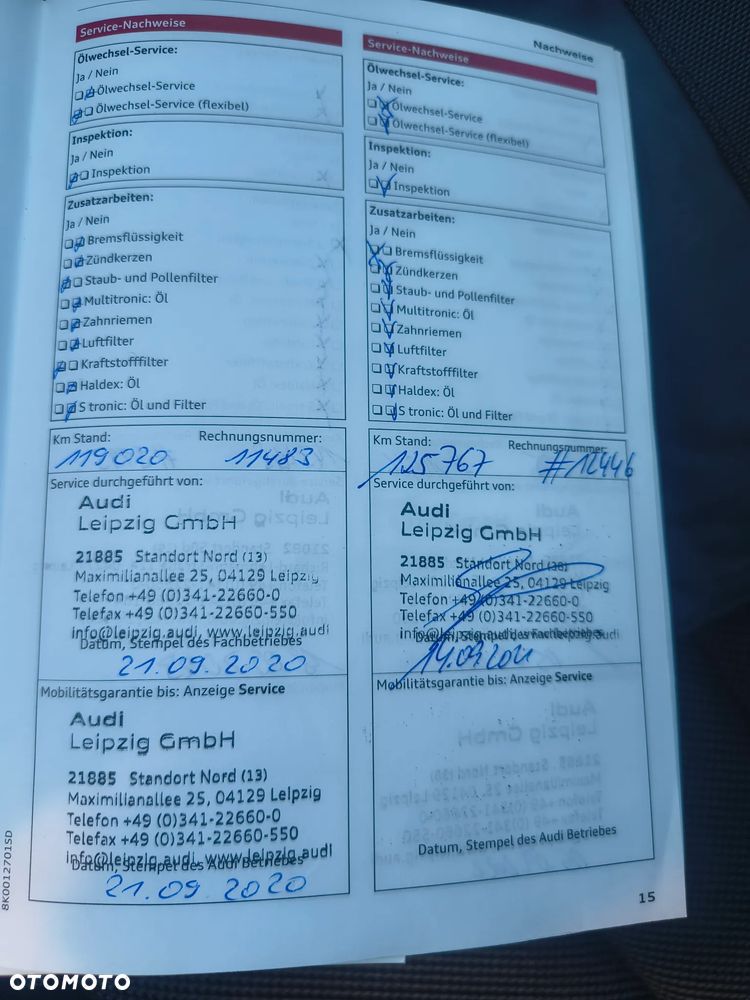 Nachweise
Service-Nachweise
Ölwechsel-Service:
Ja / Nein
Ölwechsel-Service
Ölwechsel-Service (flexibel)
Inspektion:
Ja / Nein
Inspektion
Zusatzarbeiten:
Ja / Nein
Bremsflüssigkeit
Zündkerzen
Staub- und Pollenfilter
Multitronic: Öl
Zahnriemen
Luftfilter
Kraftstofffilter
Haldex: Öl
S tronic: Öl und Filter
Km Stand: Rechnungsnummer:
119020 11483
Service durchgeführt von:
Audi
Leipzig GmbH
21885 Standort Nord (13)
Maximilianallee 25, 04129 Leipzig
Telefon +49 (0)341-22660-0
Telefax +49 (0)341-22660-550
info@leipzig.audi, www.leipzig.audi
Datum, Stempel des Fachbetriebes
21.09.2020
Mobilitätsgarantie bis: Anzeige Service
Audi
Leipzig GmbH
21885 Standort Nord (13)
Maximilianallee 25, 04129 Leipzig
Telefon +49 (0)341-22660-0
Telefax +49 (0)341-22660-550
info@leipzig.audi, www.leipzig.audi
Datum, Stempel des Audi Betriebes
21.09.2020
Service-Nachweise
Ölwechsel-Service:
Ja / Nein
Ölwechsel-Service
Ölwechsel-Service (flexibel)
Inspektion:
Ja / Nein
Inspektion
Zusatzarbeiten:
Ja / Nein
Bremsflüssigkeit
Zündkerzen
Staub- und Pollenfilter
Multitronic: Öl
Zahnriemen
Luftfilter
Kraftstofffilter
Haldex: Öl
S tronic: Öl und Filter
Km Stand: Rechnungsnummer:
125767 #12446
Service durchgeführt von:
Audi
Leipzig GmbH
21885 Standort Nord
Maximilianallee 25, 04129 Leipzig
Telefon +49 (0)341-22660-0
Telefax +49 (0)341-22660-550
Datum, Stempel des Fachbetriebes
Mobilitätsgarantie bis: Anzeige Service
Datum, Stempel des Audi Betriebes
15
8K0012701SD
OTOMOTO